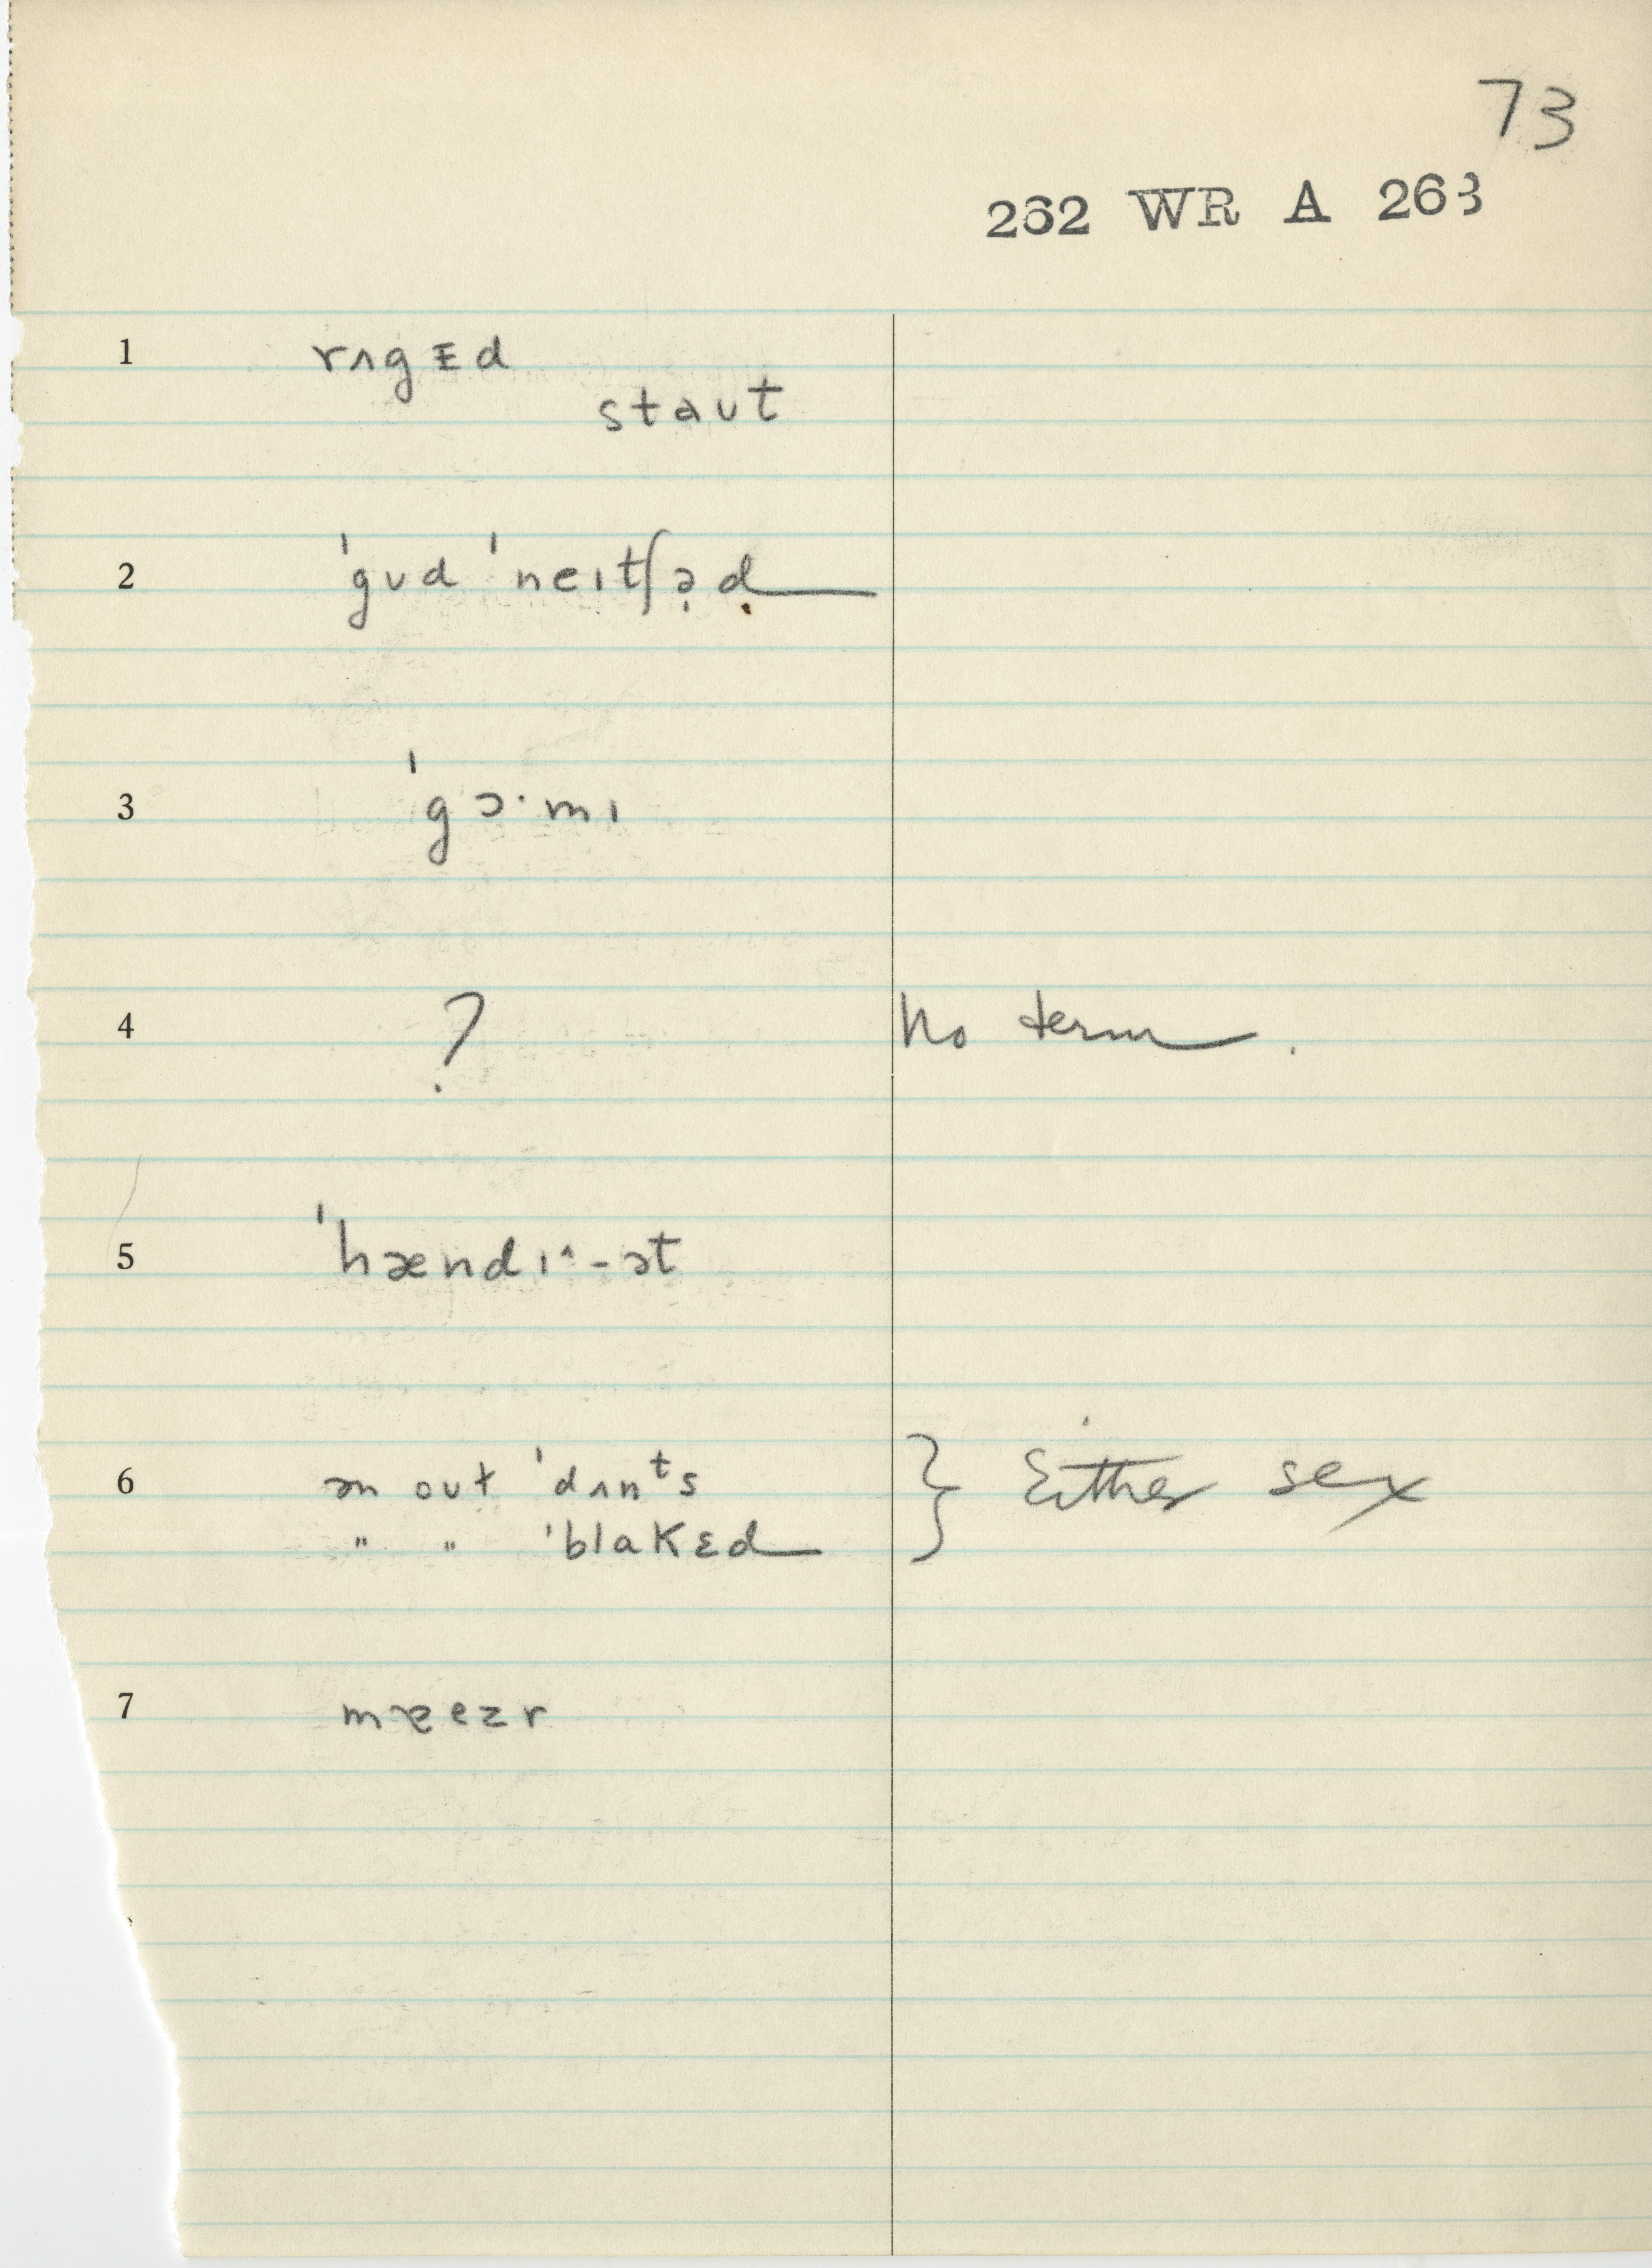 73
262 WR A 263
1 rʌgᴇd
staʊt
2 ˈgʊd ˈneɪtʃə̣ḍ
3 ˈgɔ·mɪ
4 ? No term.
5 ˈhændɪ^-ət
6 ən oʊt ˈdʌnᵗs } Either sex
" " ˈblakɛd
7